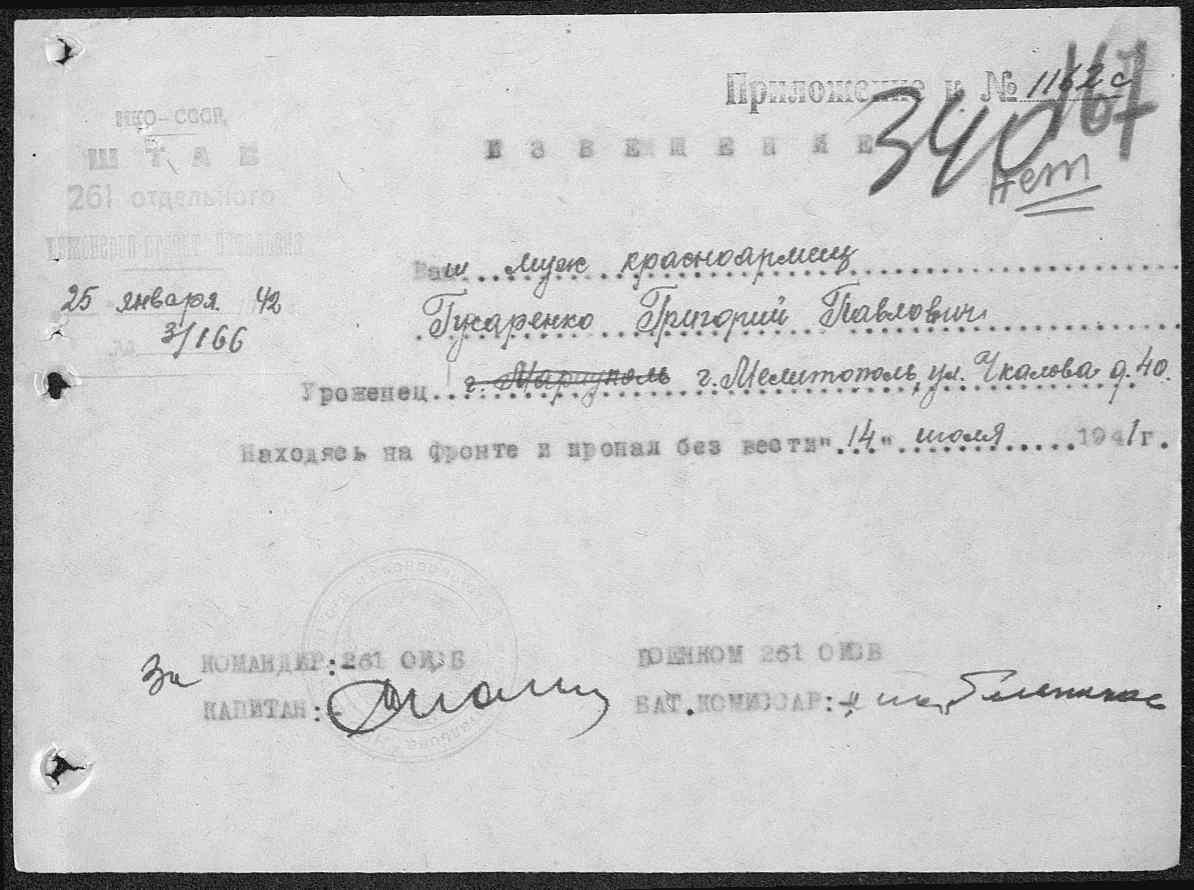 Приложение к № 1162с
167
340
нет
НКО-СССР
ШТАБ
261 отдельного
25 января 42
3/166
ИЗВЕЩЕНИЕ
Ваш муж красноармеец
Гусаренко Григорий Павлович
Уроженец г. Мариуполь г. Мелитополь, ул. Чкалова д. 40.
Находясь на фронте и пропал без вести "14" июля 1941г.
За КОМАНДИР: 261 ОИЗБ
КАПИТАН:
ВОЕНКОМ 261 ОИЗБ
БАТ.КОМИССАР: